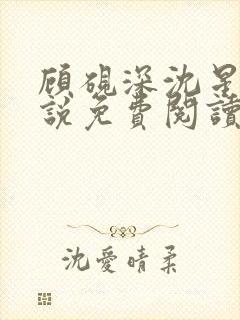 顾硯深沈星
說免費閱讀
沈愛晴柔